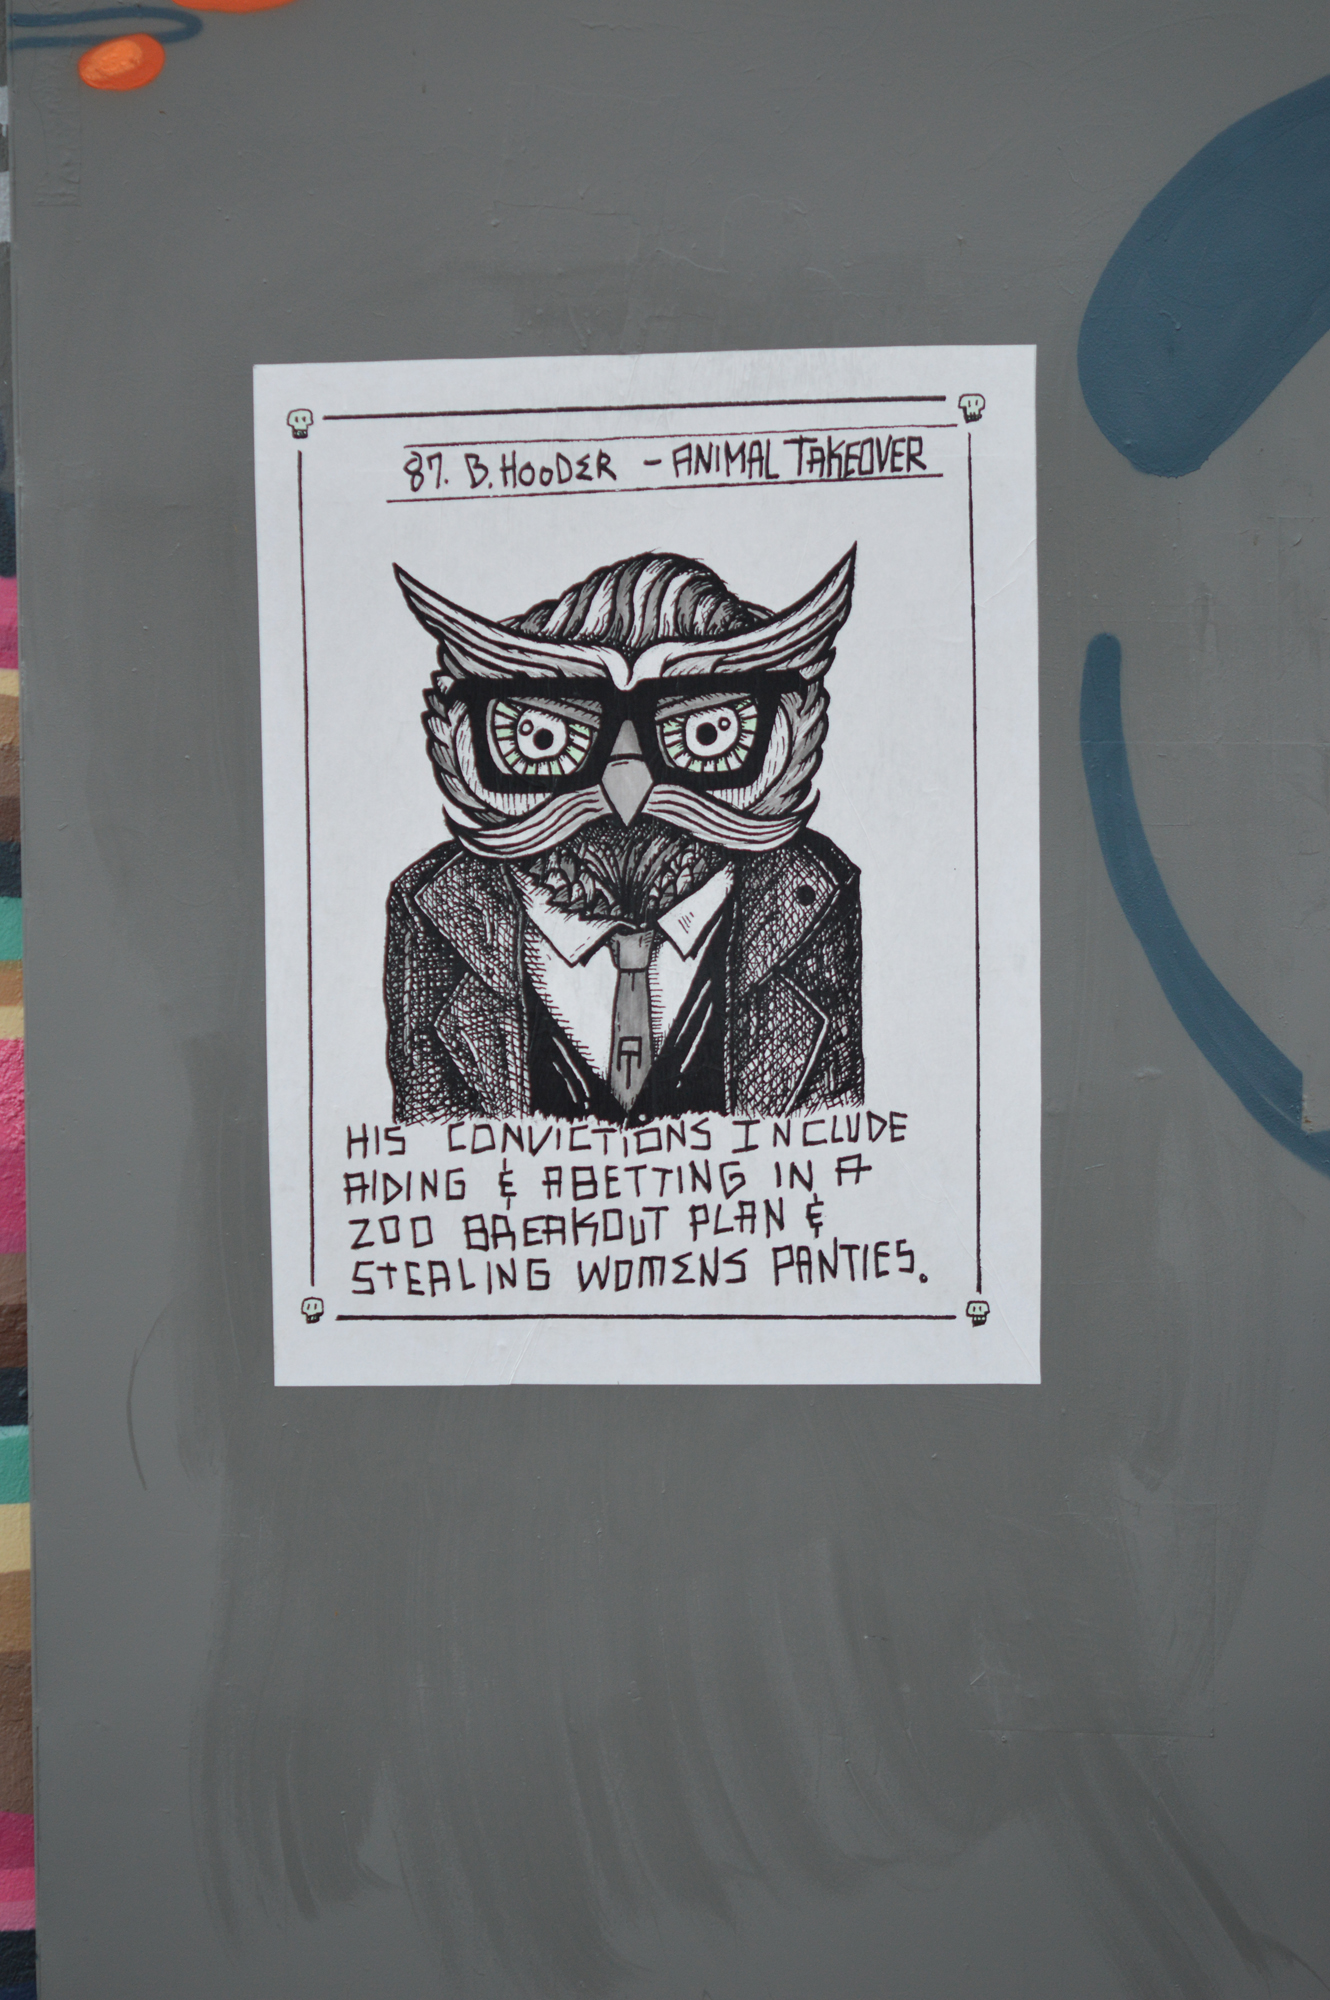 87. B. HOODER - ANIMAL TAKEOVER
HIS CONVICTIONS INCLUDE
AIDING & ABETTING IN A
ZOO BREAKOUT PLAN &
STEALING WOMENS PANTIES.